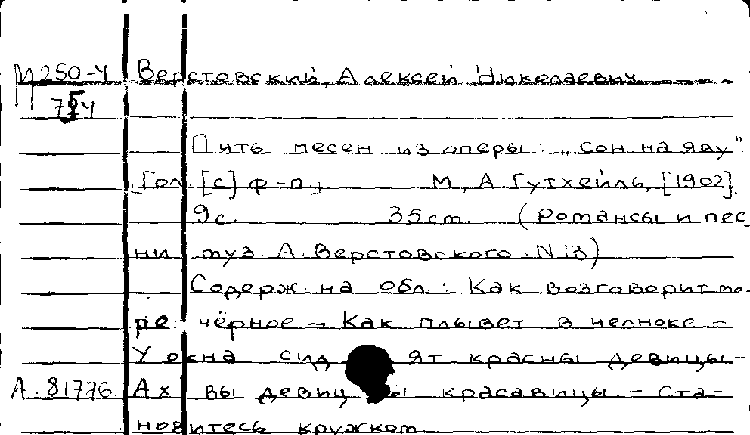 М250-4 Верстовский, Алексей Николаевич
Пять песен из оперы: „Сон на яву"
Гол. [с] ф-п. М., А. Гутхейль, [1902].
9с. 35cm. (Романсы и пес
ни муз. А. Верстовского. N 13)
Содерж на обл.: Как возговорит мо-
ре чёрное – Как плывет в челноке –
У окна сидят красны девицы –
А. 81776 Ах вы девицы красавицы – Ста-
новитесь кружком